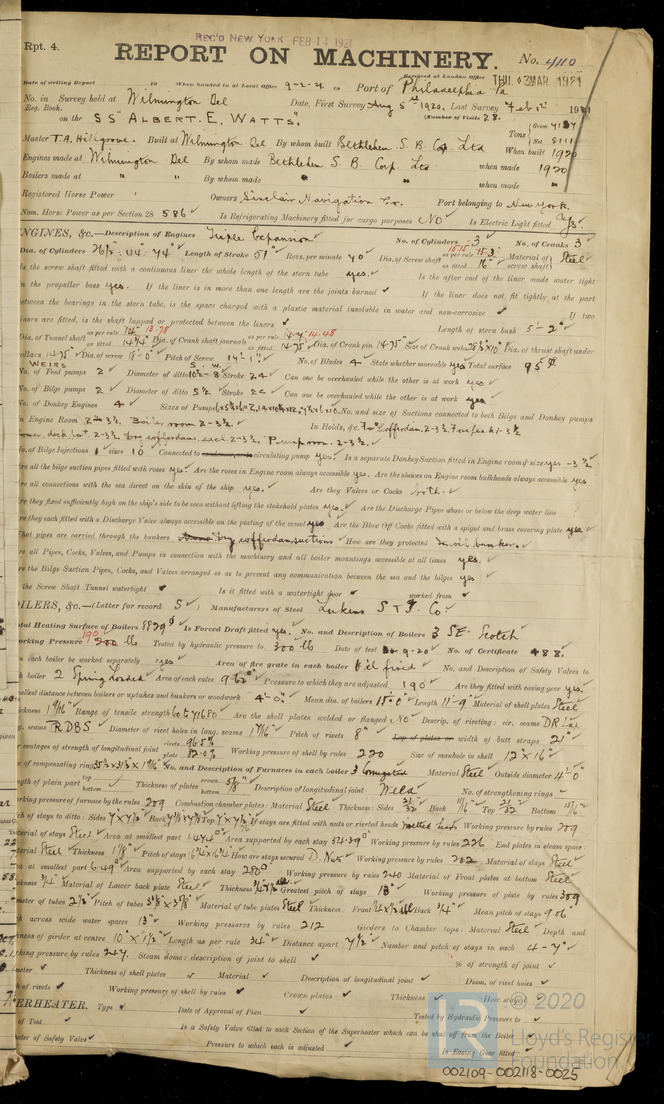 Rpt. 4.
REC'D NEW YORK FEB 14 1921
REPORT ON MACHINERY.
No. 4110
Date of writing Report 19 When handed in at Local Office 9-2-21 Port of Philadelphia Pa
Received at London Office THU. 3 MAR. 1921
No. in Survey held at Wilmington Del Date, First Survey Aug 5th 1920. Last Survey Feb 1st 1921
Reg. Book. (Number of Visits 28.
on the SS "ALBERT. E. WATTS." Tons Gross Net 5111
Master T.A. Hillgrove. Built at Wilmington Del By whom built Bethlehem S. B. Corp. Ltd When built 1920
Engines made at Wilmington Del By whom made Bethlehem S. B. Corp. Ltd when made 1920
Boilers made at " " By whom made " when made "
Registered Horse Power Owners Sinclair Navigation Co. Port belonging to New York.
Nom. Horse Power as per Section 28 586 Is Refrigerating Machinery fitted for cargo purposes NO Is Electric Light fitted Yes.
NGINES, &c.—Description of Engines Triple Expansion No. of Cylinders 3 No. of Cranks 3
Dia. of Cylinders 26½: 44: 74" Length of Stroke 51" Revs. per minute 90 Dia. of Screw shaft as per rule as fitted 16" Material of screw shaft Steel
Is the screw shaft fitted with a continuous liner the whole length of the stern tube yes. Is the after end of the liner made water tight
n the propeller boss yes. If the liner is in more than one length are the joints burned ✓ If the liner does not fit tightly at the part
etween the bearings in the stern tube, is the space charged with a plastic material insoluble in water and non-corrosive ✓ If two
iners are fitted, is the shaft lapped or protected between the liners ✓ Length of stern bush 5'-2"
Dia. of Tunnel shaft as per rule 13.78 as fitted 14¾" Dia. of Crank shaft journals as per rule 14.48 as fitted 14.75 Dia. of Crank pin 14.75" Size of Crank webs 28½x10" Dia. of thrust shaft under
ollars 14.75 Dia. of screw 18'-0" Pitch of Screw 14'-1" No. of Blades 4 State whether moveable yes Total surface 95
WEIRS
No. of Feed pumps 2 Diameter of ditto 10½-8 Stroke 24 Can one be overhauled while the other is at work yes
No. of Bilge pumps 2 Diameter of ditto 5½ Stroke 24 Can one be overhauled while the other is at work yes
No. of Donkey Engines 4 Sizes of Pumps No. and size of Suctions connected to both Bilge and Donkey pumps
n Engine Room 2-3½. Boiler room 2-3½. In Holds, &c.
Pump room. 2-3½.
No. of Bilge Injections 1 sizes 10 Connected to circulating pump yes. Is a separate Donkey Suction fitted in Engine room & size yes - 3½
re all the bilge suction pipes fitted with roses yes. Are the roses in Engine room always accessible yes. Are the sluices on Engine room bulkheads always accessible yes
re all connections with the sea direct on the skin of the ship yes. Are they Valves or Cocks both.
re they fixed sufficiently high on the ship's side to be seen without lifting the stokehold plates yes. Are the Discharge Pipes above or below the deep water line
re they each fitted with a Discharge Valve always accessible on the plating of the vessel yes Are the Blow Off Cocks fitted with a spigot and brass covering plate yes
hat pipes are carried through the bunkers cofferdam suctions How are they protected In oil bunkers.
re all Pipes, Cocks, Valves, and Pumps in connection with the machinery and all boiler mountings accessible at all times yes.
re the Bilge Suction Pipes, Cocks, and Valves arranged so as to prevent any communication between the sea and the bilges yes
the Screw Shaft Tunnel watertight ✓ Is it fitted with a watertight door ✓ worked from ✓
OILERS, &c.—(Letter for record S) Manufacturers of Steel Lukens S & I. Co
otal Heating Surface of Boilers 8829 Is Forced Draft fitted yes. No. and Description of Boilers 3 SE. Scotch
orking Pressure 190 200 lb Tested by hydraulic pressure to 300 lb Date of test 30-9-20 No. of Certificate 488.
n each boiler be worked separately yes Area of fire grate in each boiler Oil fired No. and Description of Safety Valves to
h boiler 2 Spring loaded Area of each valve 9.62" Pressure to which they are adjusted 190 Are they fitted with easing gear yes.
allest distance between boilers or uptakes and bunkers or woodwork 4'-0" Mean dia. of boilers 15'-0" Length 11'-9" Material of shell plates Steel
ickness 1 9/16 Range of tensile strength 60 to 71680 Are the shell plates welded or flanged NO Descrip. of riveting: cir. seams DR Lap
g. seams RDBS Diameter of rivet holes in long. seams 1 7/16" Pitch of rivets 8" width of butt straps 21"
rcentages of strength of longitudinal joint rivets 96.5% plate 82.0% Working pressure of shell by rules 220 Size of manhole in shell 12"x16"
of compensating ring No. and Description of Furnaces in each boiler 3 Corrugated Material Steel Outside diameter 4'-0"
ngth of plain part top bottom Thickness of plates crown bottom 5/8" Description of longitudinal joint Weld No. of strengthening rings ✓
rking pressure of furnace by the rules 209 Combustion chamber plates: Material Steel Thickness: Sides 21/32 Back 11/16" Top 21/32 Bottom 15/16
ch of stays to ditto: Sides 7"x7½" Back Top If stays are fitted with nuts or riveted heads riveted heads Working pressure by rules 209
terial of stays Steel Area at smallest part 1.474 Area supported by each stay Working pressure by rules 226 End plates in steam space:
terial Steel Thickness 1 1/8" Pitch of stays How are stays secured D. Nuts Working pressure by rules 202 Material of stays Steel
ea at smallest part 6.49 Area supported by each stay 280 Working pressure by rules 240 Material of Front plates at bottom Steel
ckness ¾" Material of Lower back plate Steel Thickness Greatest pitch of stays 13" Working pressure of plate by rules 309
meter of tubes 2½ Pitch of tubes 3⅝"x3⅝" Material of tube plates Steel Thickness: Front Back ¾" Mean pitch of stays 9.06"
ch across wide water spaces 13" Working pressures by rules 212 Girders to Chamber tops: Material Steel Depth and
kness of girder at centre 10"x1½" Length as per rule 34" Distance apart 7½" Number and pitch of stays in each 4-7"
rking pressure by rules 247. Steam dome: description of joint to shell ✓ % of strength of joint ✓
meter ✓ Thickness of shell plates ✓ Material ✓ Description of longitudinal joint ✓ Diam. of rivet holes ✓
h of rivets ✓ Working pressure of shell by rules ✓ Crown plates ✓ Thickness ✓ How stayed ✓
ERHEATER. Type ✓ Date of Approval of Plan ✓ Tested by Hydraulic Pressure to ✓
of Test ✓ Is a Safety Valve fitted to each Section of the Superheater which can be shut off from the Boiler
meter of Safety Valve ✓ Pressure to which each is adjusted ✓ Is Easing Gear fitted ✓
LR
© 2020
Lloyd's Register
Foundation
002109-002118-0025